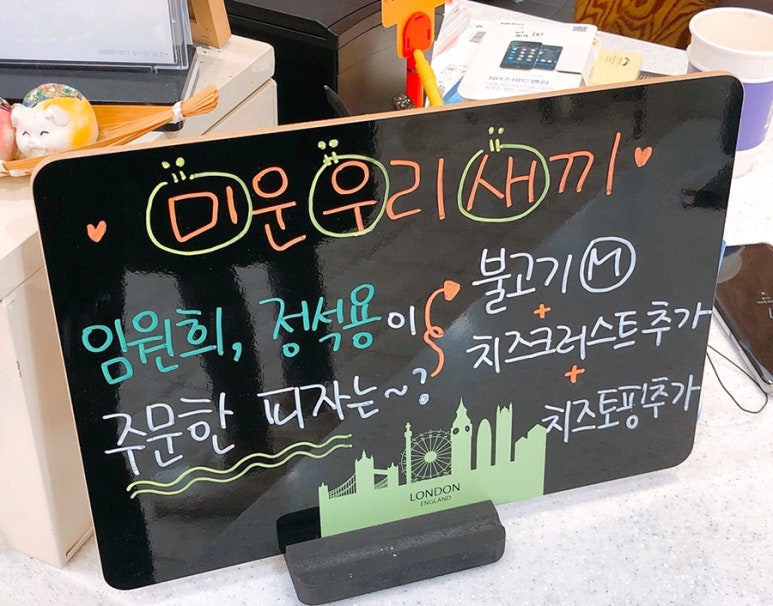 미운 우리 새끼
임원희, 정석용이
주문한 피자는~?
불고기 M
+
치즈크러스트추가
+
치즈토핑추가
LONDON
ENGLAND